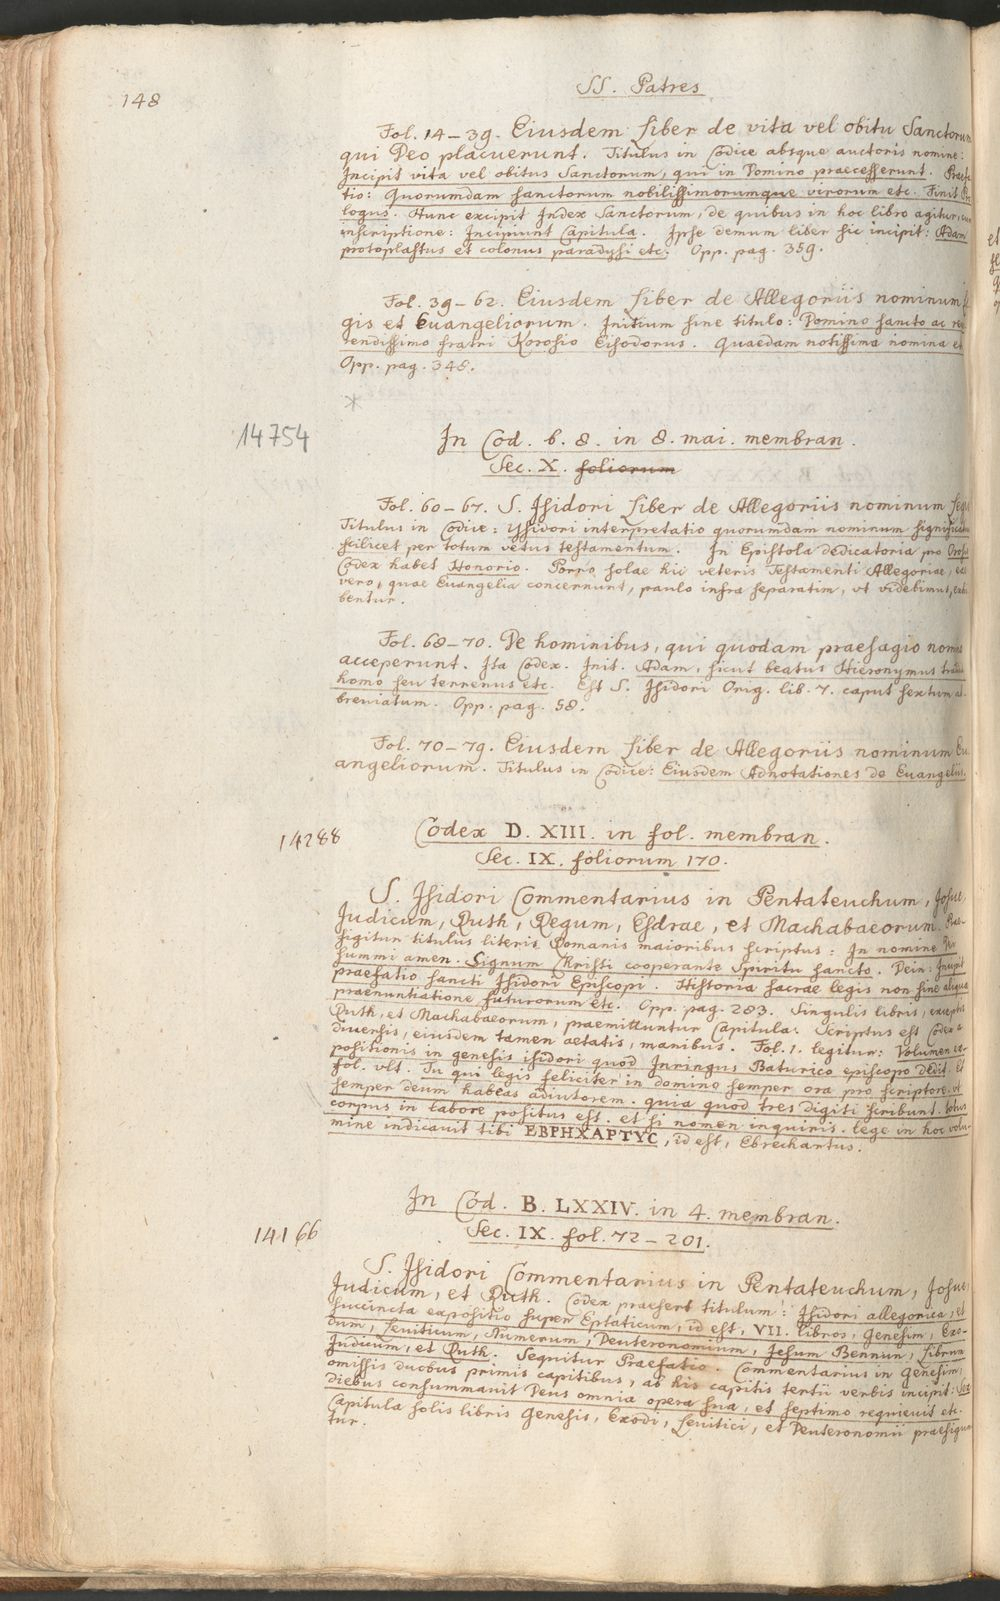 148
SS. Patres
Fol. 14–39. Eiusdem Liber de vita vel obitu Sanctorum
qui Deo placuerunt. Titulus in Codice absque auctoris nomine:
Incipit vita vel obitus Sanctorum, qui in Domino praecesserunt. Praefa
tio: Quorumdam sanctorum nobilissimorumque virorum etc. Finit Pro
logus. Hunc excipit Index Sanctorum, de quibus in hoc libro agitur, cum
inscriptione: Incipiunt Capitula. Ipse demum liber sic incipit: Adam
protoplastus et colonus paradysi etc. Opp. pag. 359.
Fol. 39–62. Eiusdem Liber de Allegoriis nominum
gis et Euangeliorum. Initium sine titulo: Domino sancto ac rev
rendissimo fratri Korosio Eisodorus. Quaedam notissima nomina
Opp. pag. 348.
*
14754
In Cod. b. 8. in 8. mai. membran.
Sec. X. foliorum
Fol. 60–67. S. Isidori Liber de Allegoriis nominum Leg
Titulus in Codice: Yssidori interpretatio quorumdam nominum
scilicet per totum vetus testamentum. In Epistola dedicatoria pro Orosio
Codex habet Honorio. Porro solae hic veteris Testamenti Allegoriae,
vero, quae Euangelia concernunt, paulo infra separatim, ut videbimus,
bentur.
Fol. 68–70. De hominibus, qui quodam praesagio nomina
acceperunt. Ita Codex. Init. Adam, sicut beatus Hieronymus
homo seu terrenus etc. Est S. Isidori Orig. lib. 7. caput sextum ab
breviatum. Opp. pag. 58.
Fol. 70–79. Eiusdem Liber de Allegoriis nominum Eu
angeliorum. Titulus in Codice: Eiusdem Adnotationes de Euangeliis.
14288
Codex D. XIII. in fol. membran.
Sec. IX. foliorum 170.
S. Isidori Commentarius in Pentateuchum, Josue,
Judicum, Ruth, Regum, Esdrae, et Machabaeorum. Prae-
figitur titulus literis Romanis maioribus scriptus: In nomine
summi amen. Signum Christi cooperante Spiritu sancto. Dein: Incipit
praefatio sancti Isidori Episcopi. Historia sacrae legis non sine aliqua
praenuntiatione futurorum etc. Opp. pag. 283. Singulis libris, exceptis
Ruth, et Machabaeorum, praemittuntur Capitula. Scriptus est Codex a
diuersis, eiusdem tamen aetatis, manibus. Fol. 1. legitur: Volumen ex-
positionis in genesis isidori quod Inringus Baturico episcopo dedit. Et
fol. vlt. Tu qui legis feliciter in domino semper ora pro scriptore. ut
semper deum habeas adiutorem. quia quod tres digiti scribunt. totus
corpus in labore positus est. et si nomen inquiris. lege in hoc volu-
mine indicauit tibi EBPHXAPTYC, id est, Ebrechartus.
14166
In Cod. B. LXXIV. in 4. membran.
Sec. IX. fol. 72–201.
S. Isidori Commentarius in Pentateuchum, Josue,
Judicum, et Ruth. Codex praefert titulum: Isidori allegorica, et
succincta expositio super Eptaticum, id est, VII. libros, Genesim, Exo-
dum, Leuiticum, Numerum, Deuteronomium, Jesum Bennun, Librum
Judicum, et Ruth. Sequitur Praefatio. Commentarius in Genesim,
omissis duobus primis capitibus, ab his capitis tertii verbis incipit: Sex
diebus consummauit Deus omnia opera sua, et septimo requieuit etc.
Capitula solis libris Genesis, Exodi, Leuitici, et Deuteronomii praefigun
tur.